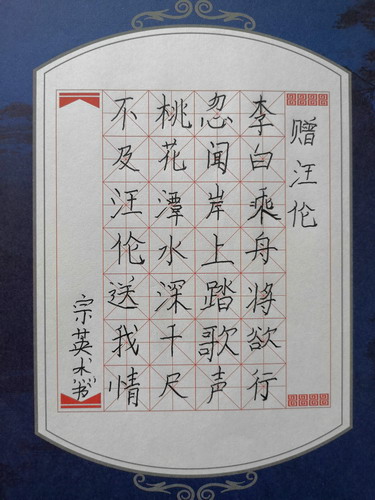 赠汪伦
李白乘舟将欲行
忽闻岸上踏歌声
桃花潭水深千尺
不及汪伦送我情
宗英水书